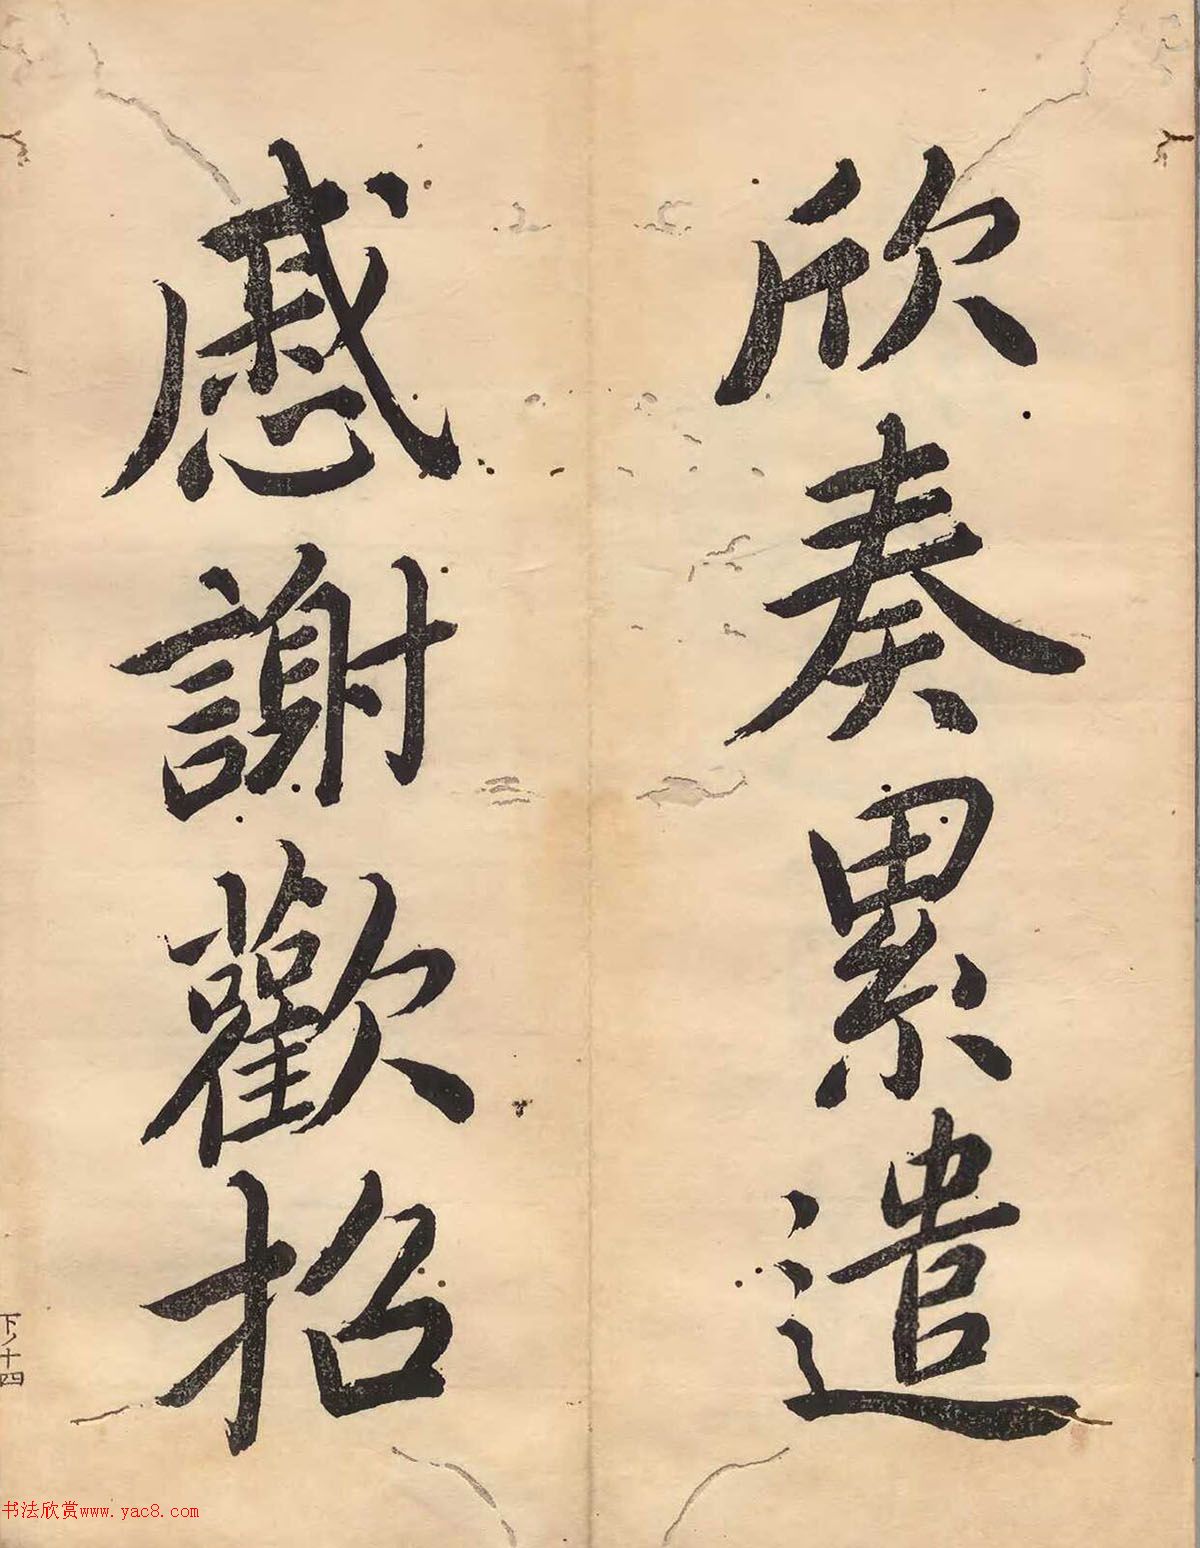 欣奏累遣
慼謝歡招
下ノ十四
书法欣赏www.yac8.com